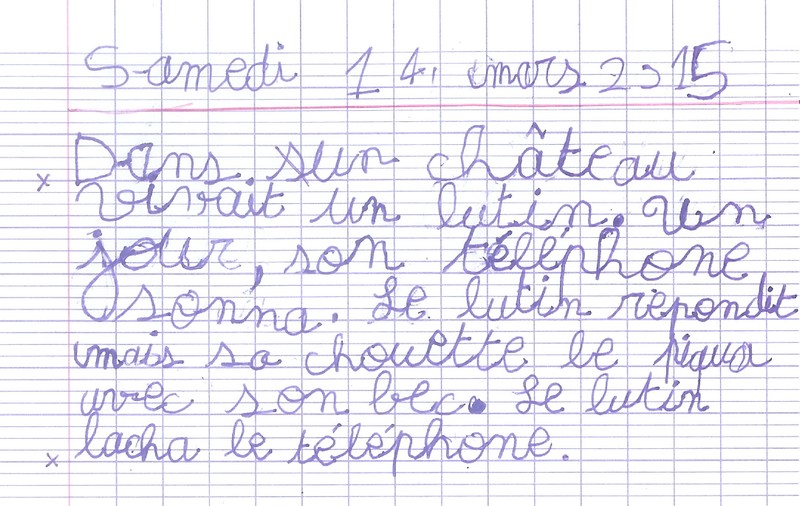 Samedi 14 mars 2015
x Dans sun château
vivait un lutin. Un
jour, son téléphone
sonna. Le lutin répondit
mais sa chouette le piqua
avec son bec. Le lutin
x lacha le téléphone.